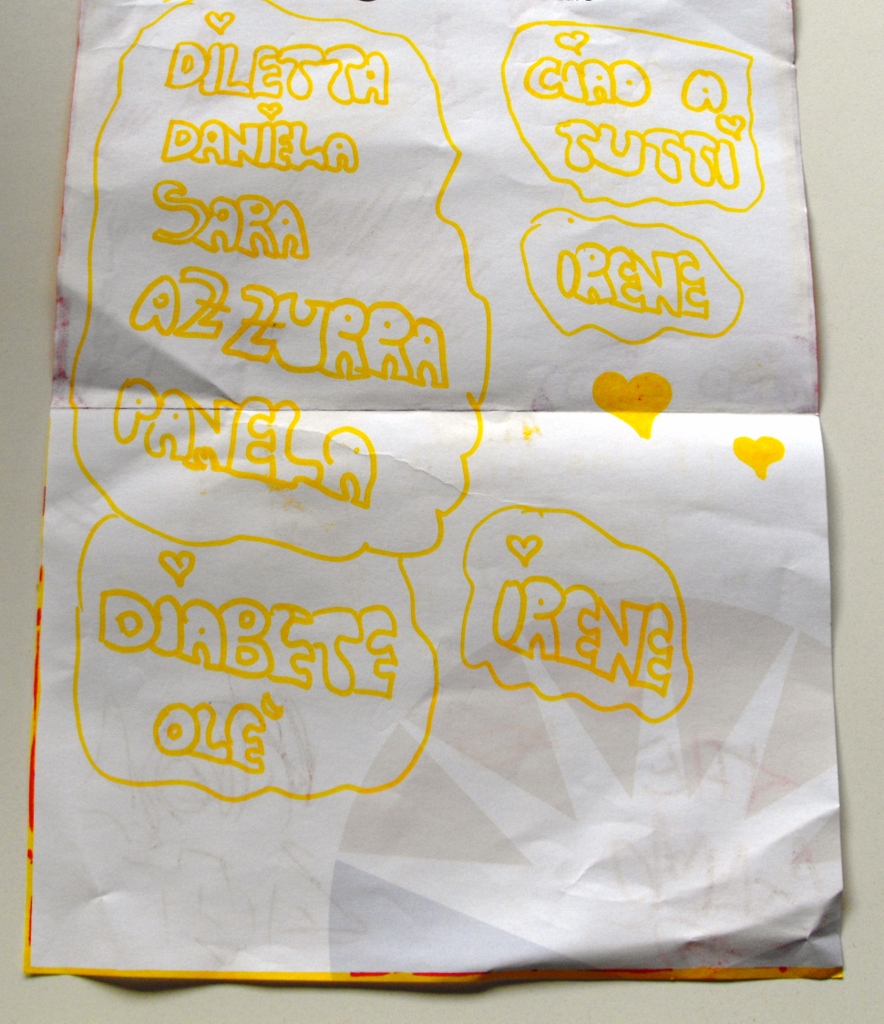 DILETTA
DANIELA
SARA
AZZURRA
PANELA
CIAO A
TUTTI
IRENE
DIABETE
OLE'
IRENE